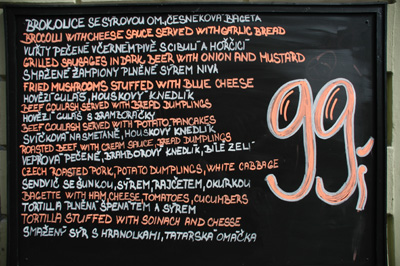 BROKOLICE SE SÝROVOU OM., ČESNEKOVÁ BAGETA
BROCOLLI WITH CHEESE SAUCE SERVED WITH GARLIC BREAD
VUŘTY PEČENÉ V ČERNÉM PIVĚ S CIBULÍ A HOŘČICÍ
GRILLED SAUSAGES IN DARK BEER WITH ONION AND MUSTARD
SMAŽENÉ ŽAMPIONY PLNĚNÉ SÝREM NIVA
FRIED MUSHROOMS STUFFED WITH BLUE CHEESE
HOVĚZÍ GULÁŠ, HOUSKOVÝ KNEDLÍK
BEEF GOULASH SERVED WITH BREAD DUMPLINGS
HOVĚZÍ GULÁŠ S BRAMBORÁČKY
BEEF GOULASH SERVED WITH POTATO PANCAKES
SVÍČKOVÁ NA SMETANĚ, HOUSKOVÝ KNEDLÍK
ROASTED BEEF WITH CREAM SAUCE, BREAD DUMPLINGS
VEPŘOVÁ PEČENĚ, BRAMBOROVÝ KNEDLÍK, BÍLÉ ZELÍ
CZECH ROASTED PORK, POTATO DUMPLINGS, WHITE CABBAGE
SENDVIČ SE ŠUNKOU, SÝREM, RAJČETEM, OKURKOU
BAGETTE WITH HAM, CHEESE, TOMATOES, CUCUMBERS
TORTILLA PLNĚNÁ ŠPENÁTEM A SÝREM
TORTILLA STUFFED WITH SOINACH AND CHESSE
SMAŽENÝ SÝR S HRANOLKAMI, TATARSKÁ OMAČKA
99,-